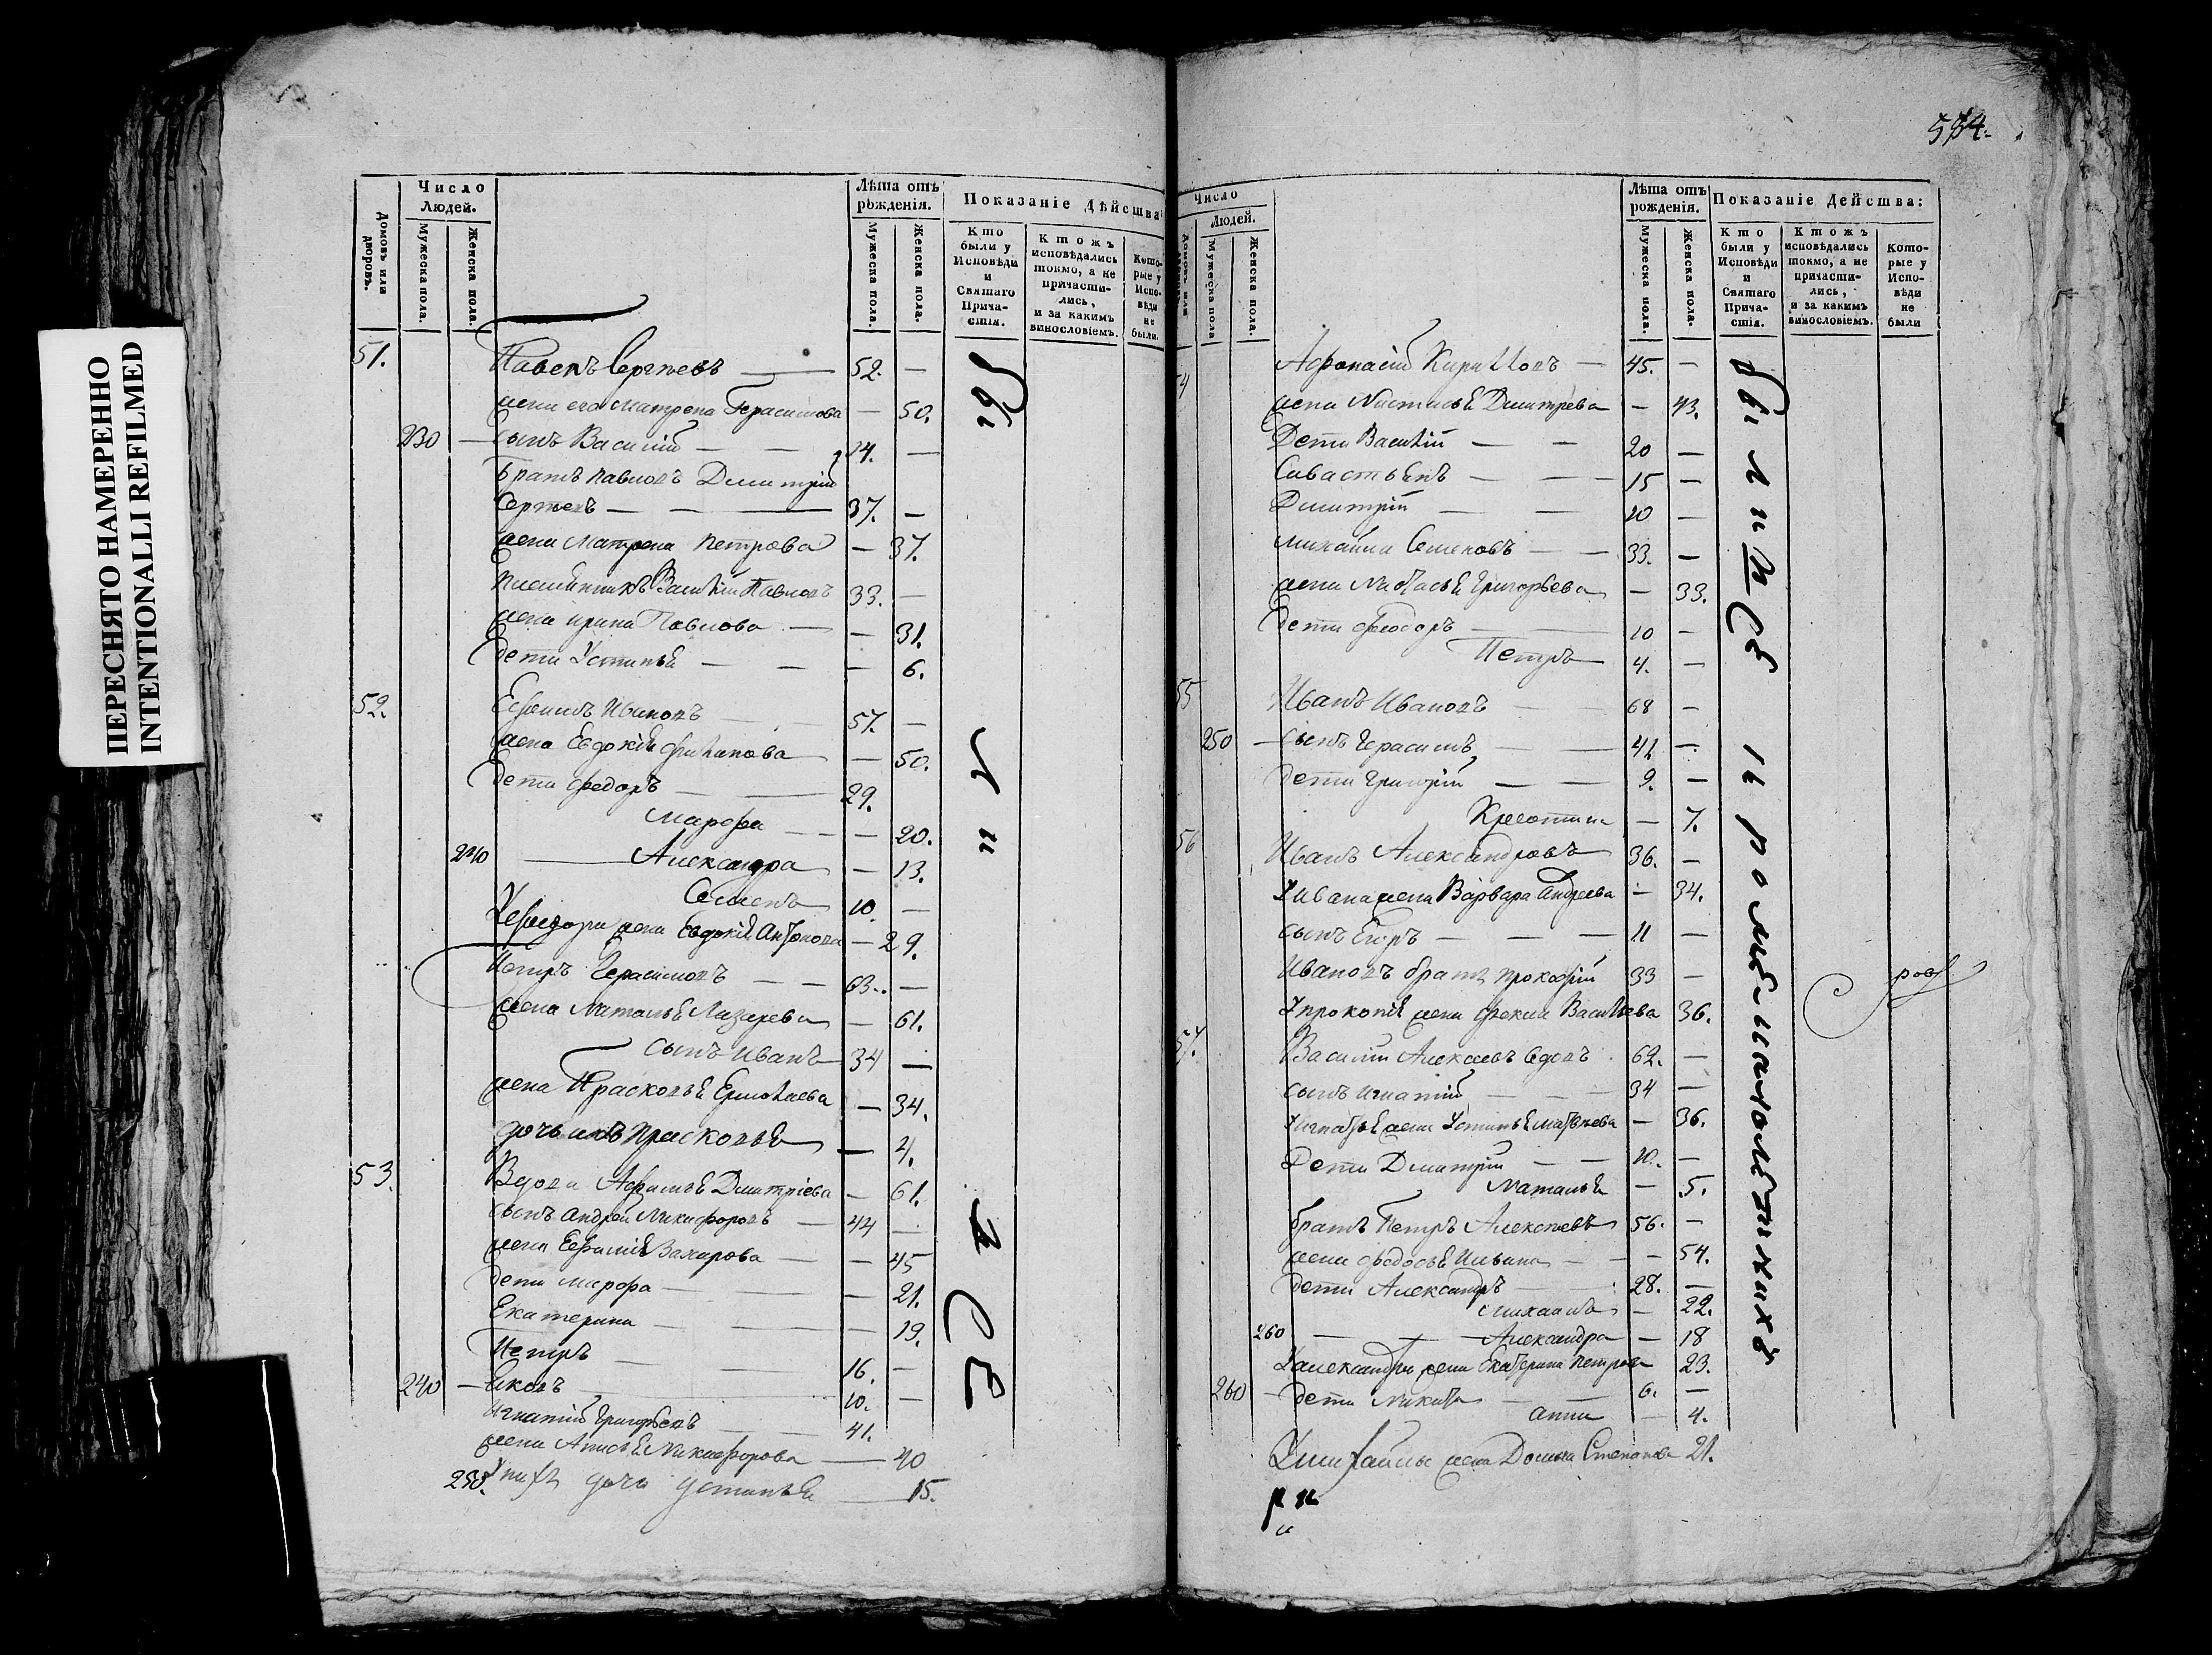 ПЕРЕСНЯТО НАМЕРЕННО
INTENTIONALLI REFILMED
Домовъ или дворовъ.
Число Людей.
Мужеска пола.
Женска пола.
Лѣта отъ рожденія.
Мужеска пола.
Женска пола.
Показаніе Дѣйства
Кто были у Исповѣди и Святаго Прича-стія.
Ктожъ исповѣдались токмо, а не причасти-лись, и за какимъ винословіемъ.
Кото-рые у Испо-вѣди не были.
51. Павелъ Сергѣевъ — 52. —
жена его Матрена Герасимова — 50.
230 — сынъ Василій — 14. —
братъ Павловъ Димитрій
Сергѣевъ — 37. —
жена Матрена Петрова — 37.
племянникъ Василій Павловъ 33. —
жена Ирина Павлова — 31.
дети Устинья — 6.
52. Ефимъ Ивановъ 57. —
жена Евдокія Филипова — 50.
дети Федоръ 29.
Марфа — 20.
240 Александра — 13.
Семенъ 10. —
жена Евдокія Антонова — 29.
Петръ Герасимовъ 63. —
жена Наталья Лазарева — 61.
сынъ Иванъ 34 —
жена Прасковья Ермолаева — 34.
дочь ихъ Прасковья — 4.
53. Вдова Афимья Дмитріева — 61.
сынъ Андрей Никифоровъ — 44 —
жена Ефимія Захарова — 45
дети Марфа — 21.
Екатерина — 19.
Петръ 16. —
240 — Яковъ 10. —
Игнатій Григорьевъ 41.
жена Анисья Никифорова — 40
250. У нихъ дочь Устинья 15.
бы
л
и
В С Ѣ
534.
Число Людей.
Домовъ или
Мужеска пола
Женска пола.
Лѣта отъ рожденія.
Мужеска пола.
Женска пола.
Показаніе Действа:
Кто были у Исповѣди и Святаго Прича-стія.
Ктожъ исповѣдались токмо, а не причасти-лись, и за какимъ винословіемъ.
Кото-рые у Испо-вѣди не были
54 Афонасій Кириловъ — 45. —
жена Настасья Дмитрева — 43.
Дети Василій — 20 —
Савастьянъ — 15 —
Димитрій 10 —
Михайла Семеновъ — 33. —
жена Настасья Григорьева — 33.
дети Феодоръ 10 —
Петръ 4. —
55 Иванъ Ивановъ 68 —
250 — сынъ Герасимъ 41 —
дети Григорій 9. —
— 7.
56 Иванъ Александровъ 36. —
У Ивана жена Варвара Андреева — 34.
сынъ Егоръ — 11 —
Ивановъ братъ Прокофій 33 —
У Прокопія жена Фекла Васильева 36.
57. Василій Алексеевъ вдовъ 62. —
сынъ Игнатій 34 —
У Игнатья жена Устинья Матвѣева — 36.
Дети Дмитрій 10. —
Наталья — 5.
братъ Петръ Алексѣевъ 56. —
жена Федосья Ильина — 54.
дети Александръ 28. —
— 22.
260 Александра — 18
У Александры жена Екатерина Петрова 23.
260 дети Никита 6. —
Анна — 4.
У Михайлы жена Домна Степанова 21.
были всѣ кромѣ малолѣтнихъ